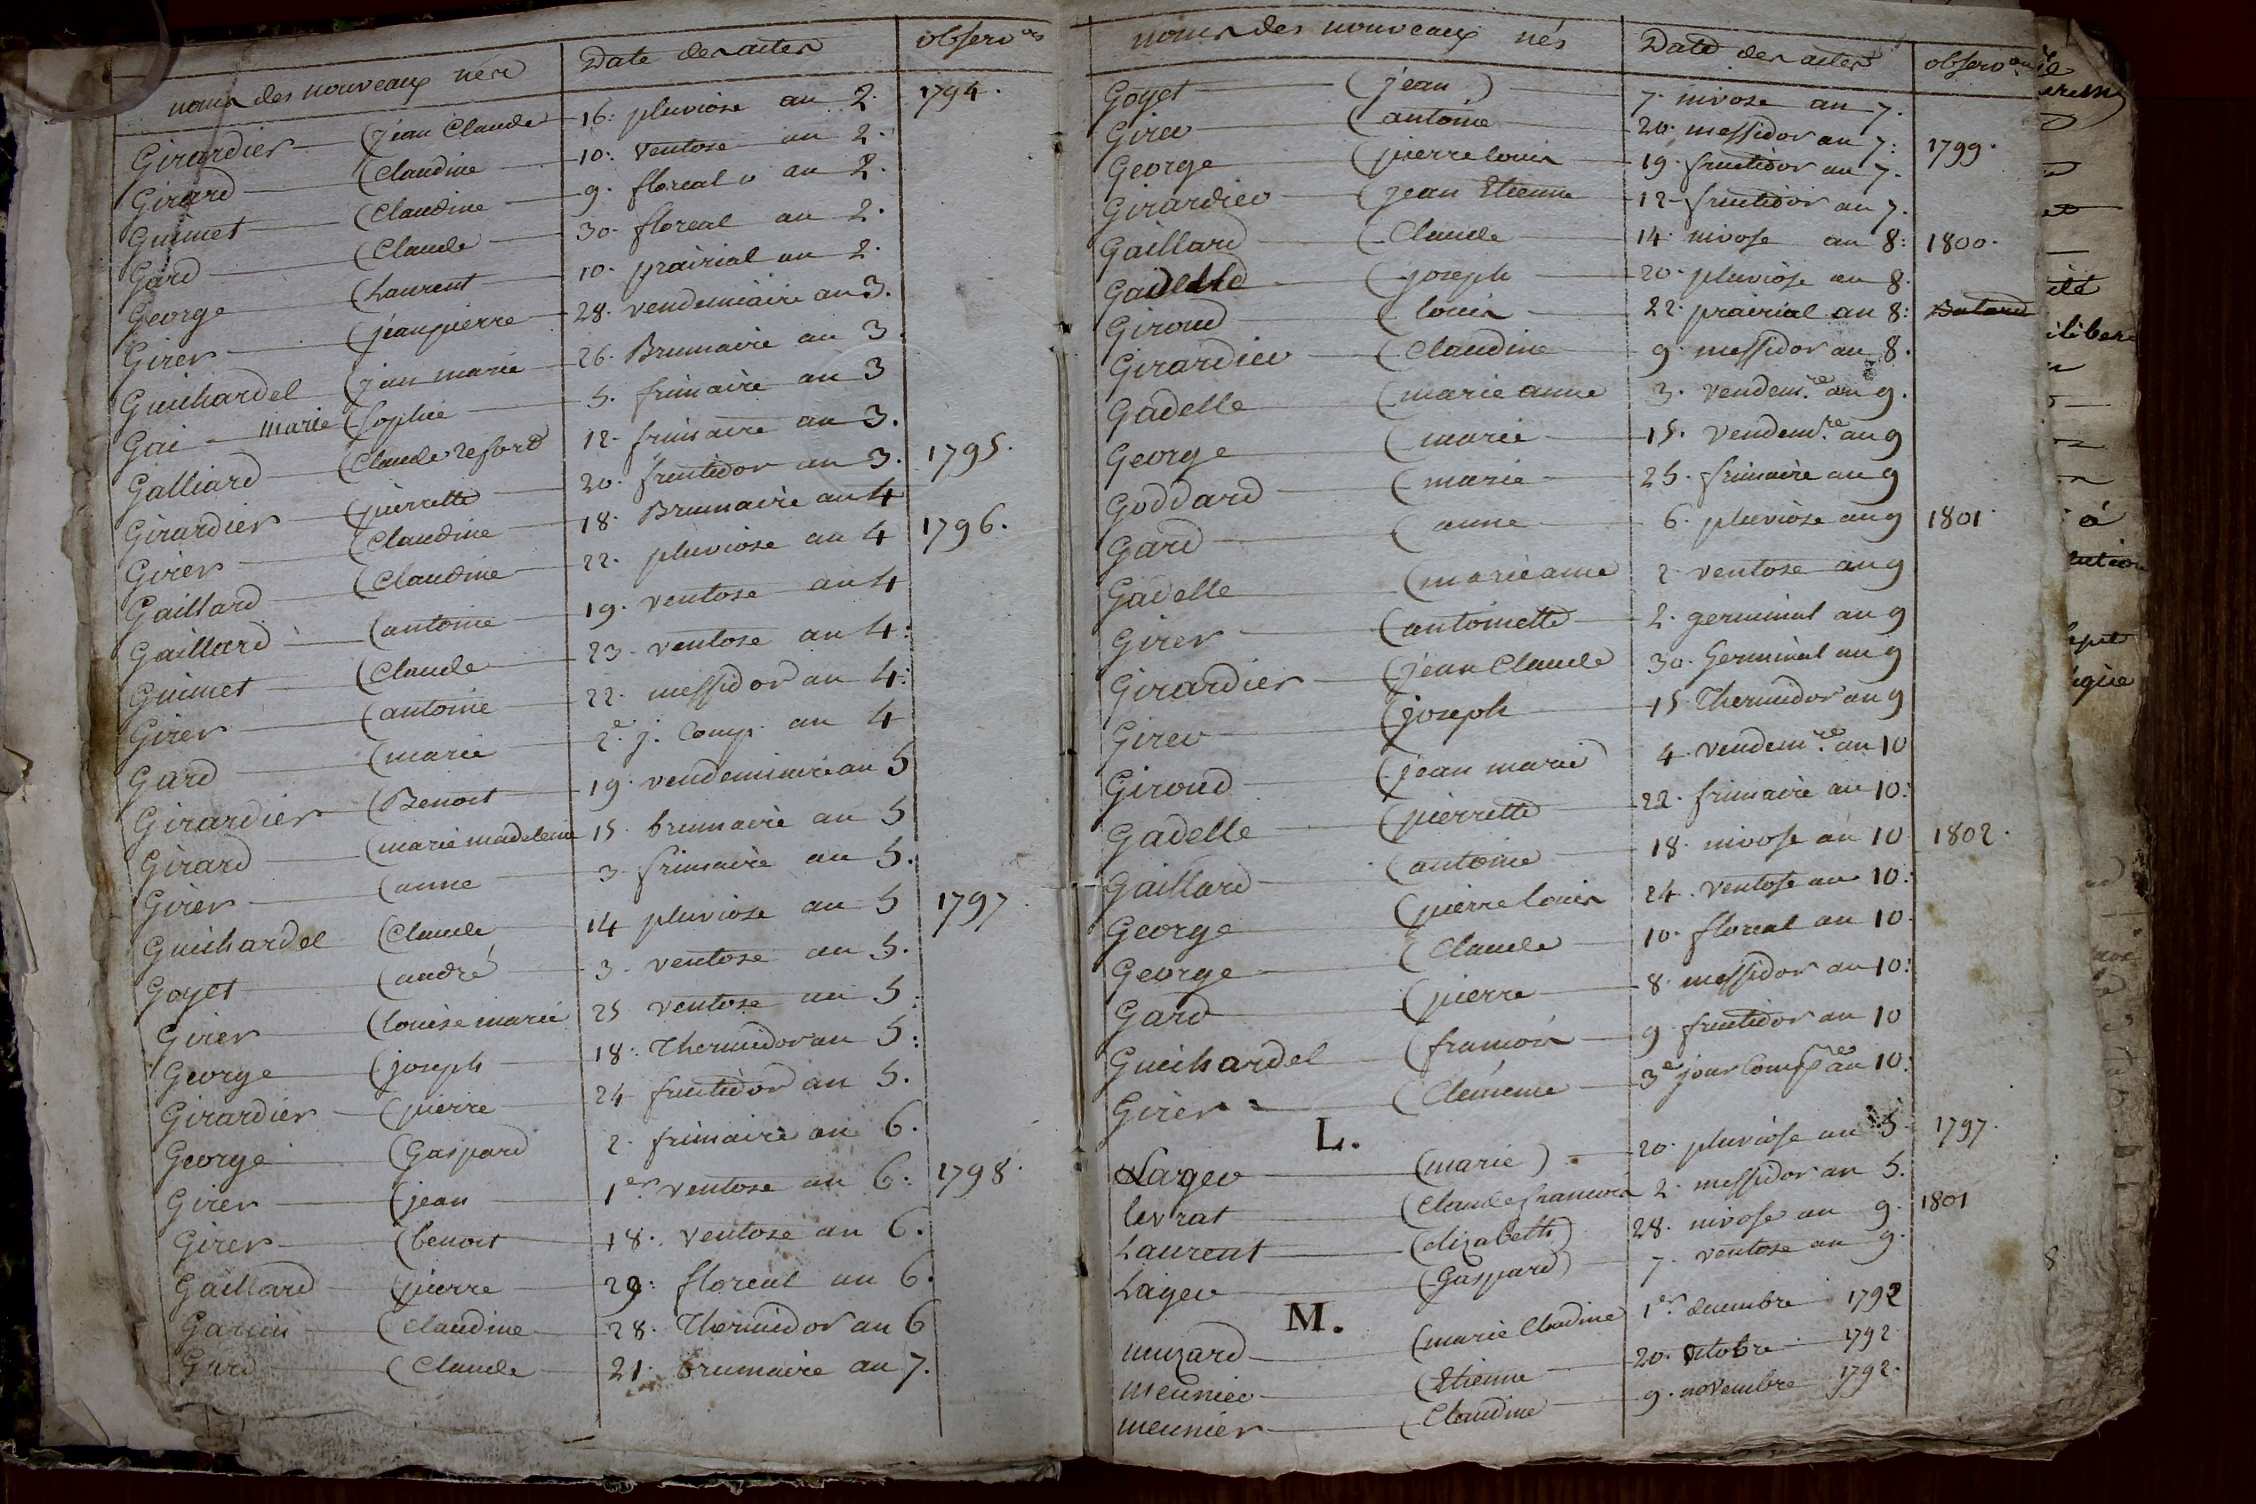 noms des nouveaux nés Date des actes observ.ons
Girardier (jean Claude 16. pluviose an 2. 1794.
Girard (Claudine 10. Ventose an 2.
Guimet (Claudine 9. floreal an 2.
Gard (Claude 30. floreal an 2.
George (Laurent 10. prairial an 2.
Girer (jean pierre 28. vendemiaire an 3.
Guichardel (jean marie 26. Brumaire an 3.
Gai marie (Sophie 5. frimaire an 3
Galliard (Claude 12. frimaire an 3.
Girardier (pierrette 20. fructidor an 3. 1795.
Girer (Claudine 18. Brumaire an 4
Gaillard (Claudine 22. pluviose an 4 1796.
Gaillard (antoine 19. ventose an 4
Guimet (Claude 23. ventose an 4.
Girer (antoine 22. messidor an 4.
Gard (marie 2.e j. Comp. an 4
Girardier (Benoit 19. vendemiaire an 5
Girard (marie madeleine 15. brumaire an 5
Girer (anne 3. frimaire an 5.
Guichardel (Claude 14 pluviose an 5 1797.
Goyet (andré 3. ventose an 5.
Girer (louise marie 25 ventose an 5.
George (joseph 18. Thermidor an 5.
Girardier (pierre 24 fructidor an 5.
George (Gaspard 2. frimaire an 6.
Girer (jean 1er ventose an 6. 1798.
Girer (benoit 18. Ventose an 6.
Gaillard (pierre 29. floreal an 6.
(Claudine 28. Thermidor an 6
Gard (Claude 21. brumaire an 7.
noms des nouveaux nés Date des actes observ.ons
Goyet (jean) 7. nivose an 7.
Girer (antoine 20. messidor an 7. 1799.
George (pierre louis 19. fructidor an 7.
Girardier (jean Etienne 12. fructidor an 7.
Gaillard (Claude 14. nivose an 8. 1800.
Gadelle (joseph 20. pluviose an 8.
Giroud (louis 22. prairial an 8. Batard
Girardier (Claudine 9. messidor an 8.
Gadelle (marie anne 3. vendem.re an 9.
George (marie 15. Vendem.re an 9
Goddard (marie 25. frimaire an 9
Gard (anne 6. pluviose an 9 1801.
Gadelle (marie anne 2. ventose an 9
Girer (antoinette 2. germinal an 9
Girardier (jean Claude 30. Germinal an 9
Girer (joseph 15. Thermidor an 9
Giroud (jean marie 4. vendem.re an 10
Gadelle (pierrette 22. frimaire an 10.
Gaillard (antoine 18. nivose an 10 1802.
George (pierre louis 24. ventose an 10.
George (Claude 10. floreal an 10.
Gard (pierre 8. messidor an 10.
Guichardel (francois 9. fructidor an 10
Girer (Clémence 3e jour Comp.re an 10.
L.
Lager (marie) 20. pluviose an 5. 1797.
levrat (Claude francois 2. messidor an 5.
Laurent (elizabeth) 28. nivose an 9. 1801
Lager (Gaspard) 7. ventose an 9.
M.
muzard (marie Claudine 1er decembre 1792
meunier (Etienne 20. octobre 1792
meunier (Claudine 9. novembre 1792.